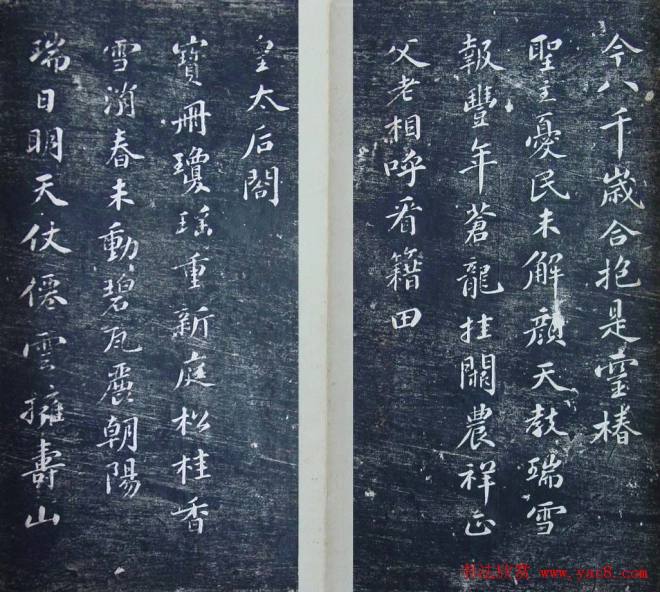 今八千歲合抱是靈椿
聖主憂民未解顏天教瑞雪
報豐年蒼龍挂闕農祥正
父老相呼看籍田
皇太后閤
寶冊瓊瑤重新庭松桂香
雪消春未動碧瓦麗朝陽
瑞日明天仗僊雲擁壽山
书法欣赏 www.yac8.com